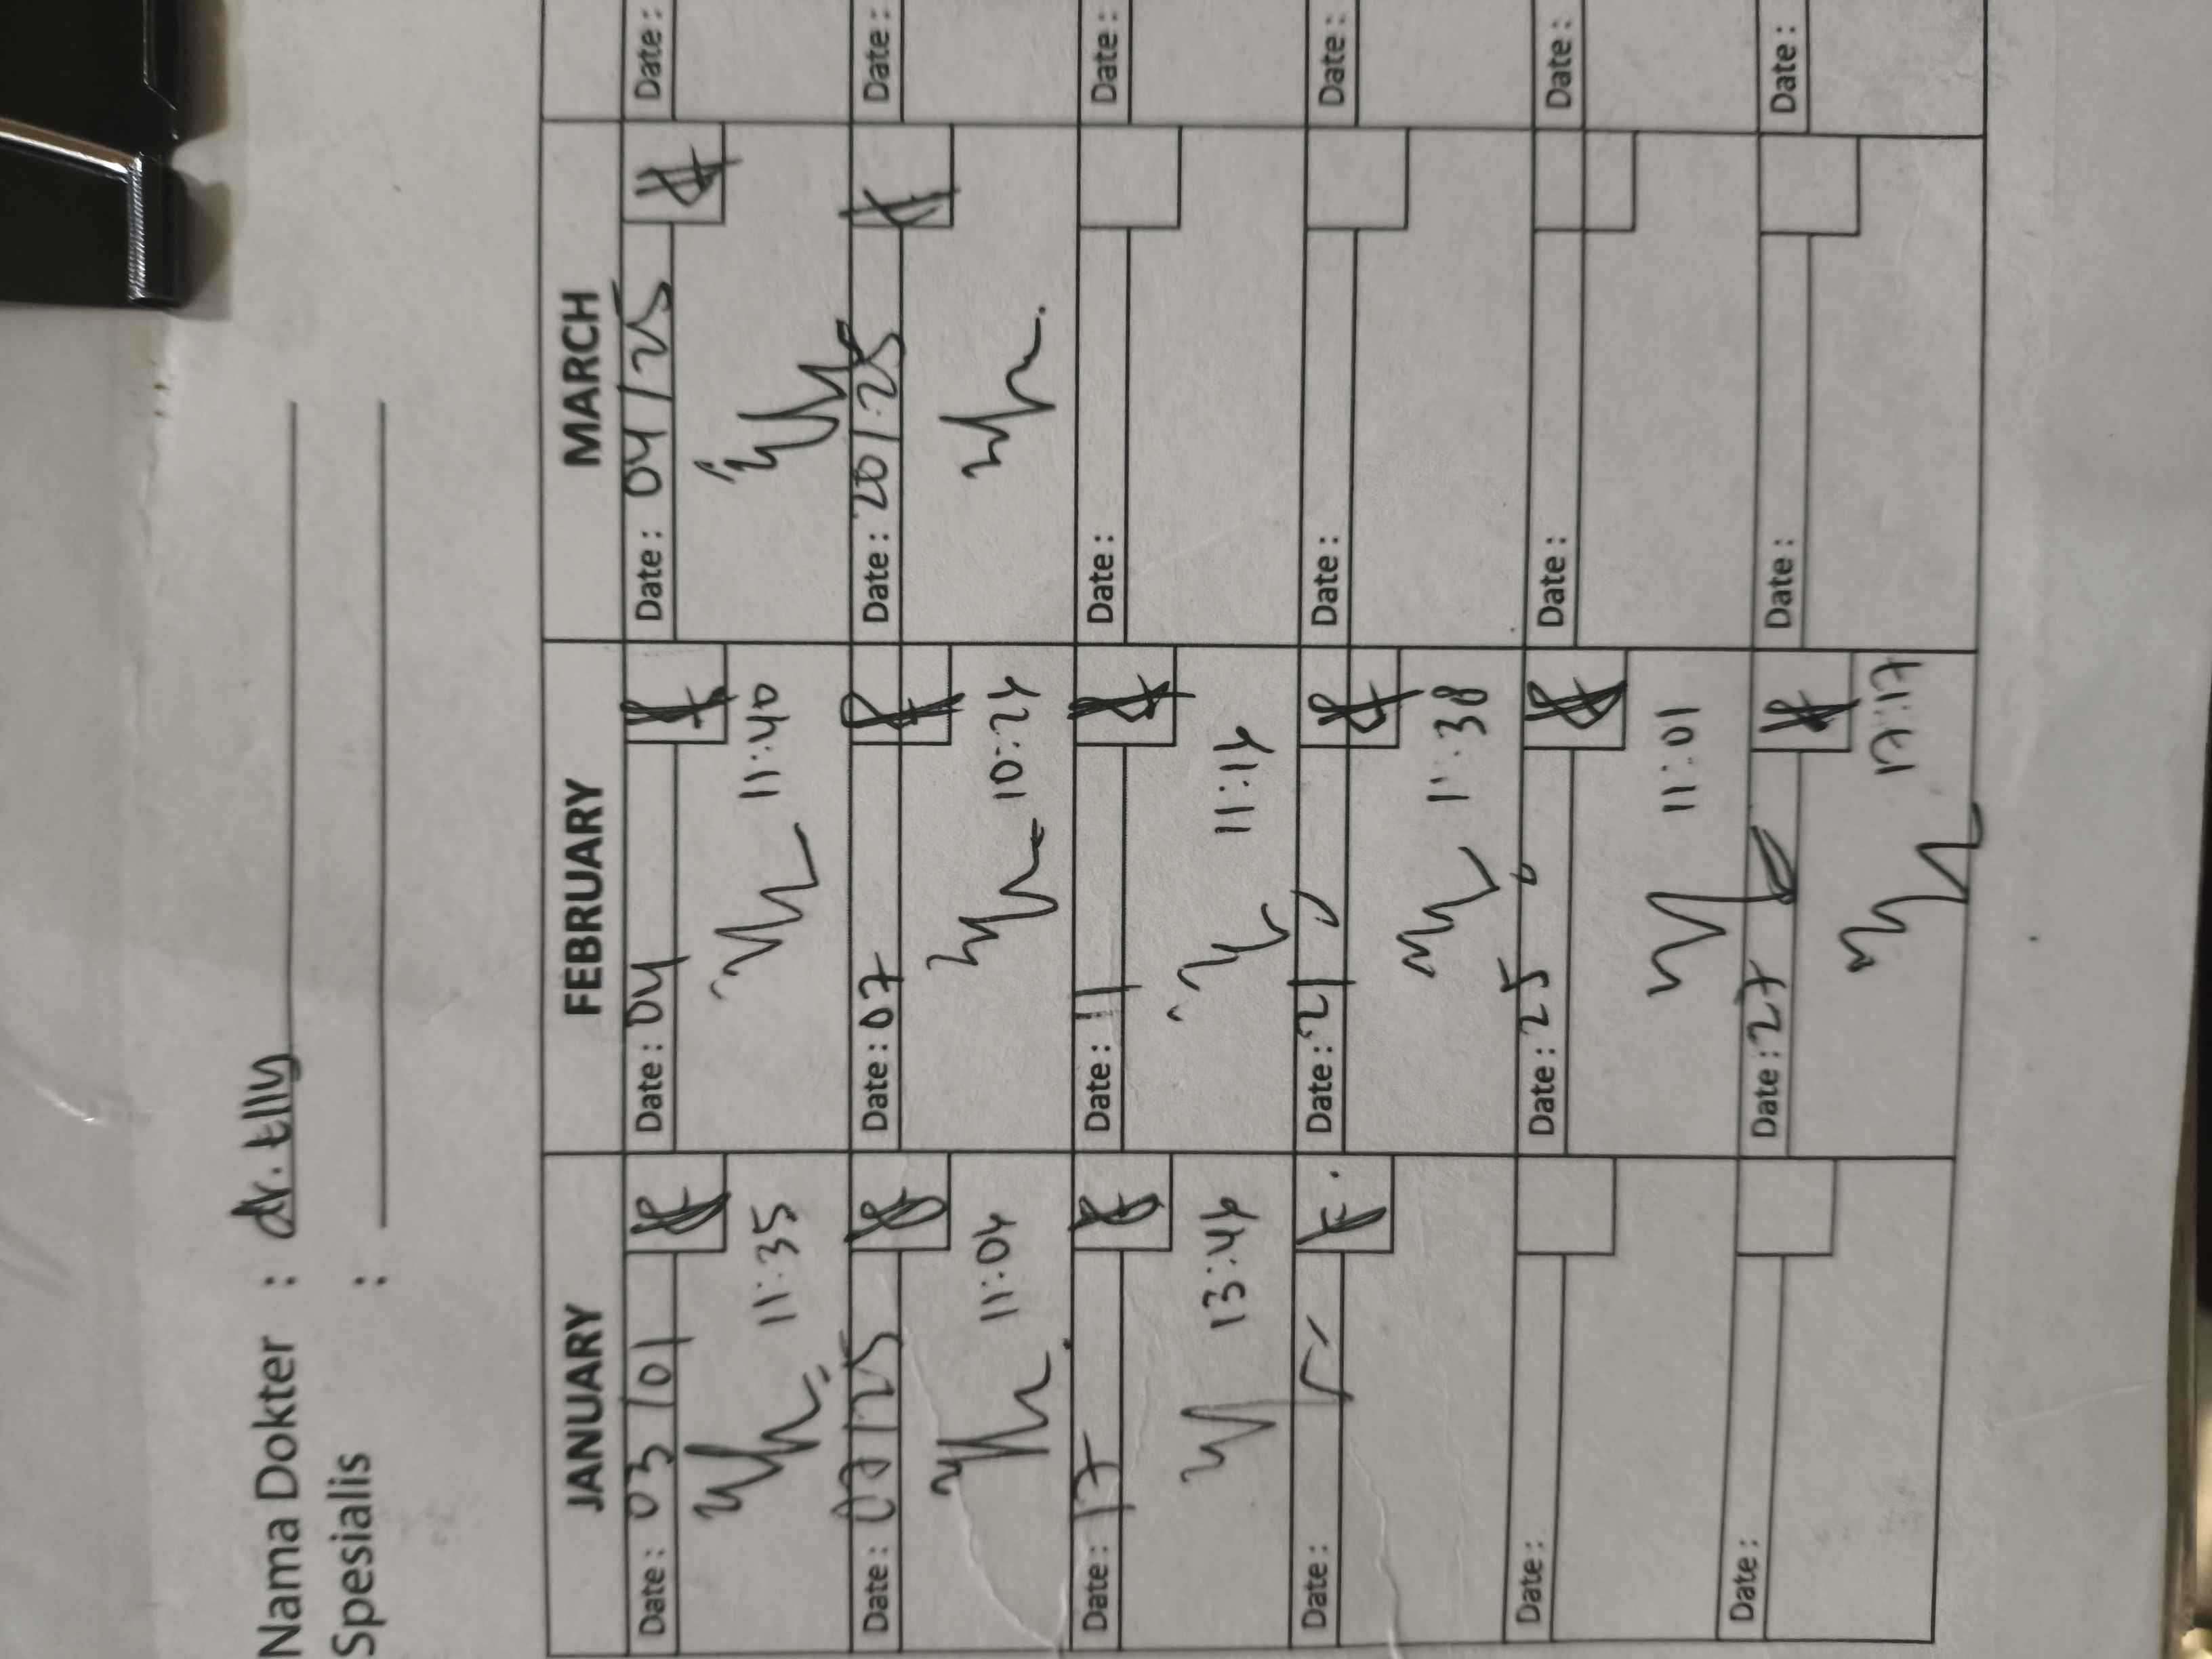 Nama Dokter : dr. Elly
Spesialis :
JANUARY FEBRUARY MARCH
Date : 03/01 Date : 04 Date : 04/25 Date :
11:35 11:40
Date : 07/25 Date : 07 Date : 20/25 Date :
11:04 10:24
Date : 17 Date : 11 Date : Date :
13:44 11:14
Date : Date : 21 Date : Date :
11:38
Date : Date : 25 Date : Date :
11:01
Date : Date : 27 Date : Date :
17:17